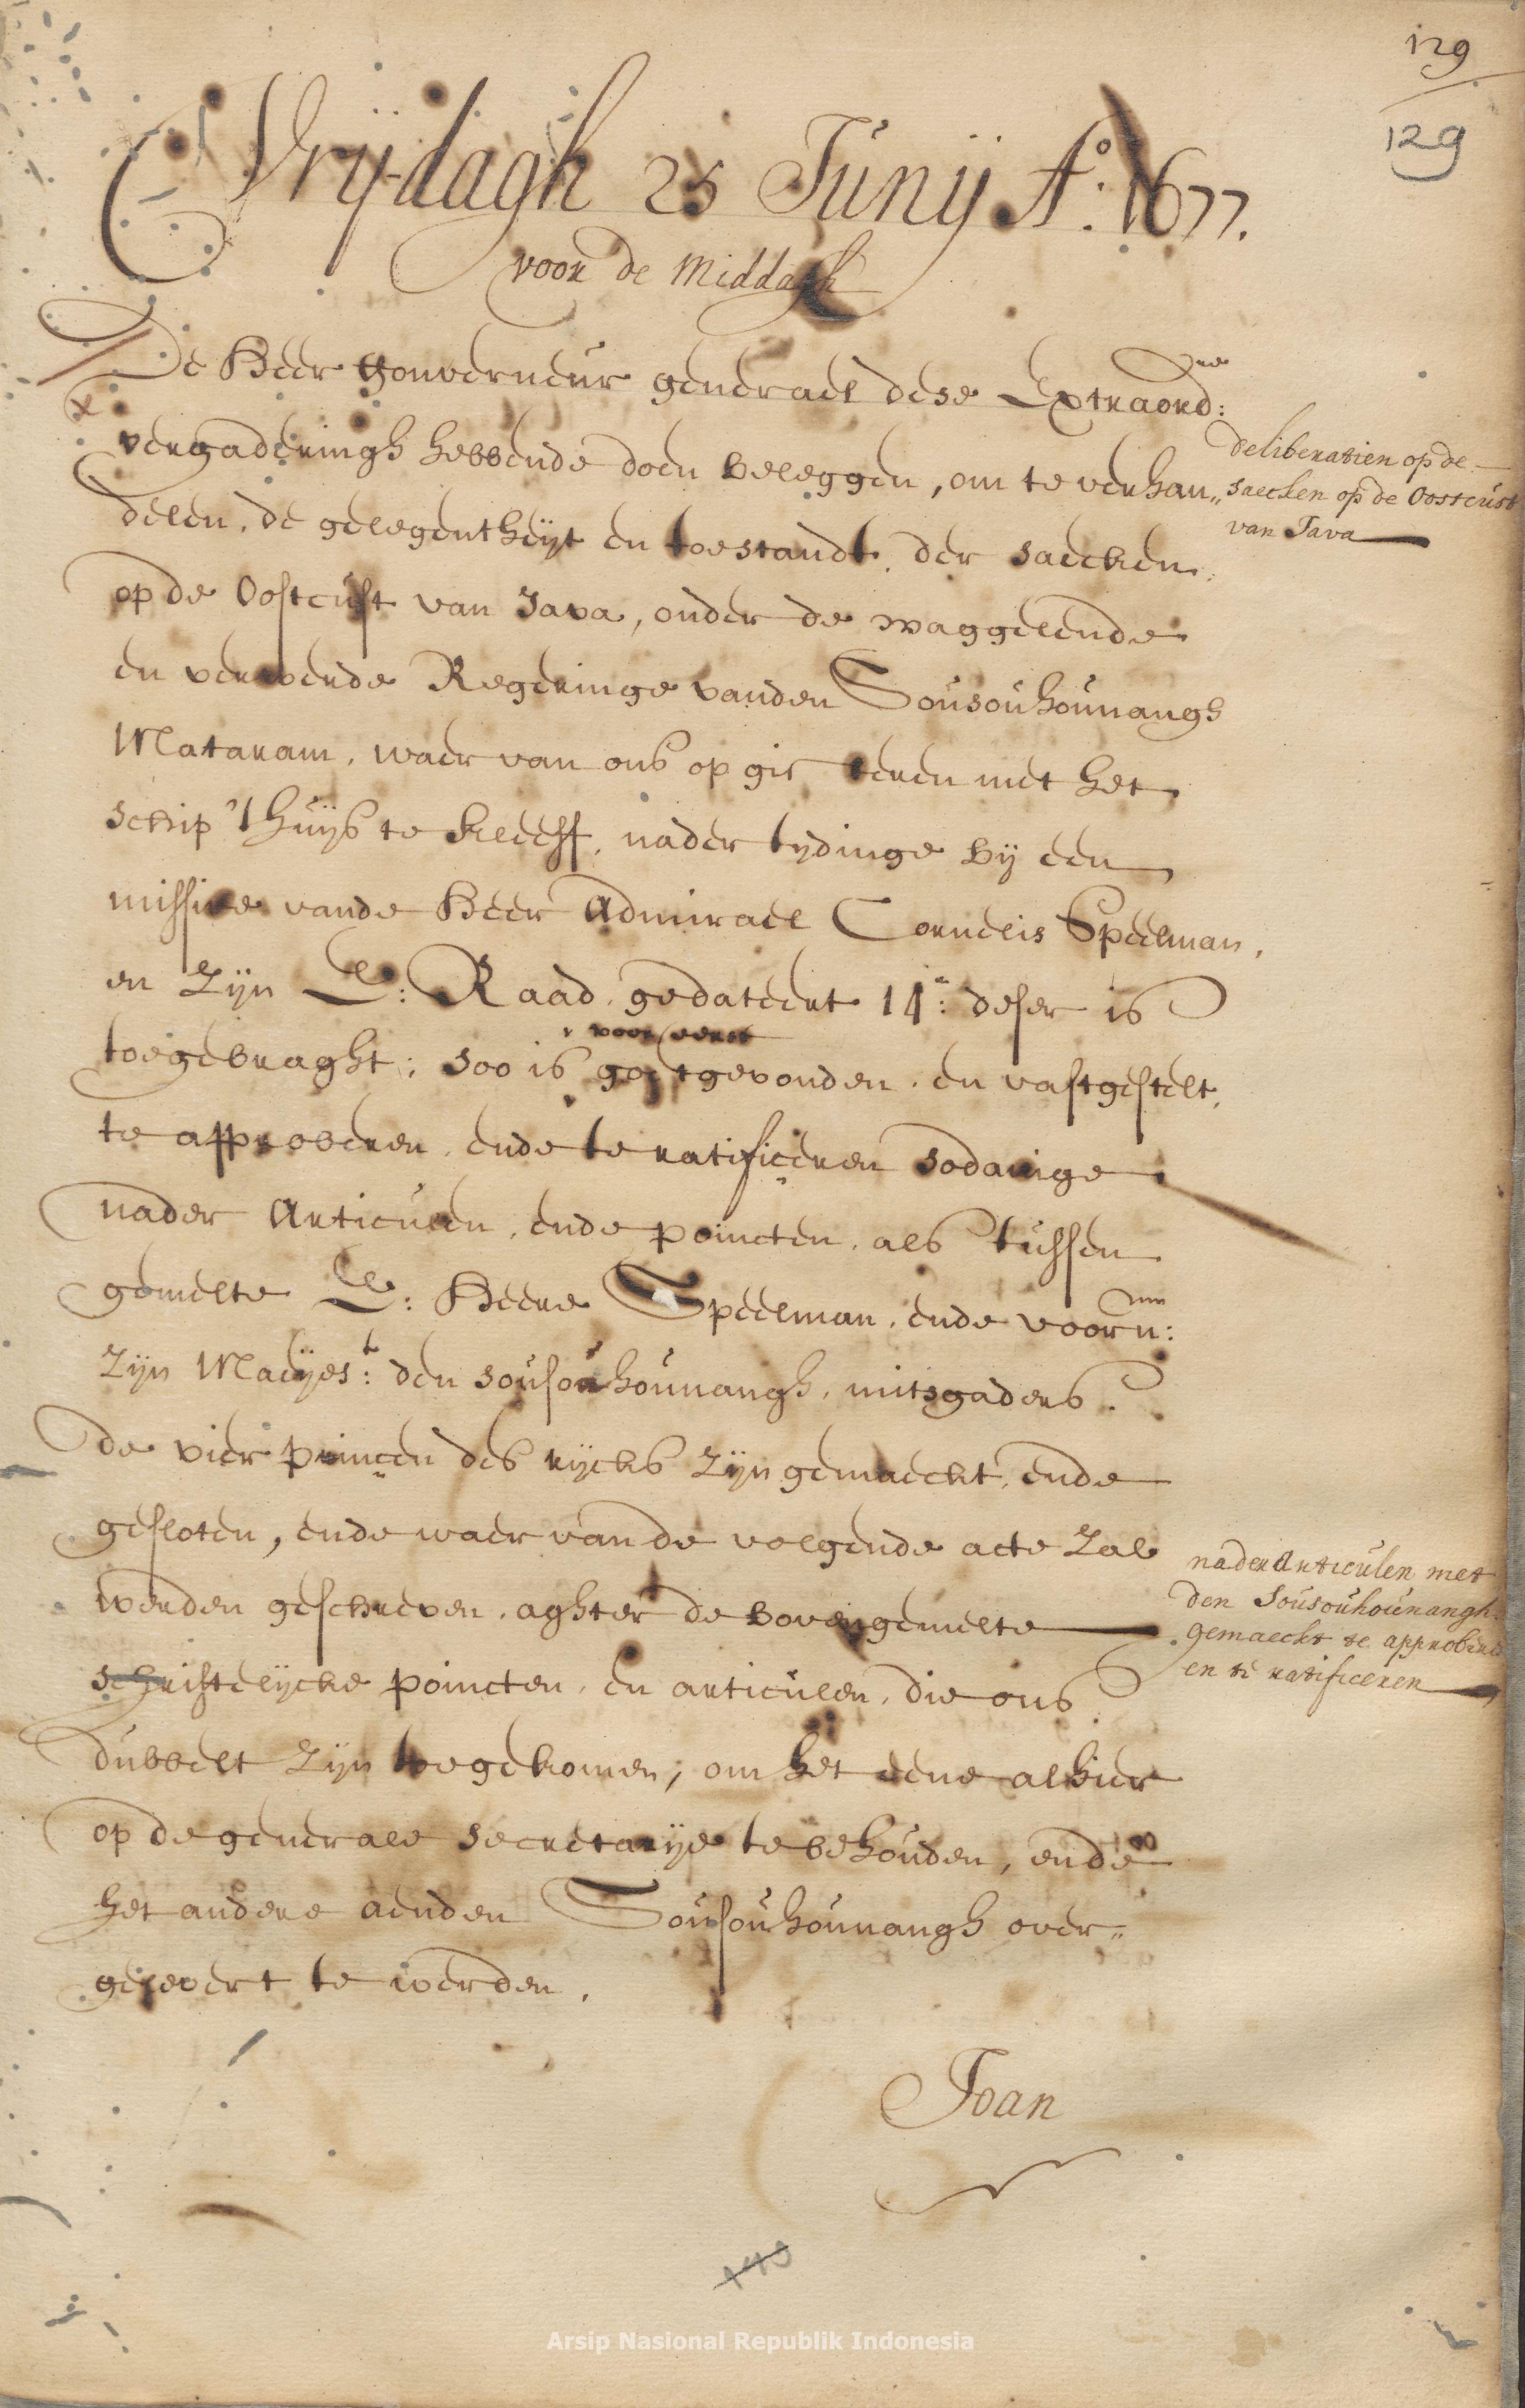 129
129
Vrijdagh 25 Junij Aº: 1677.
voor de Middagh
De Heer Gouverneur generael dese Extraord:re
vergaderingh hebbende doen beleggen, om te verhan„
delen, de gelegentheijt en toestandt, der saecken,
op de Oostcust van Java, onder de waggelende
en verwerde Regeringe vanden Sousouhounangh
Mataram, waer van ons op gisteren met het
schip 't huijs te Kleeff, nader tydinge bij een
missive vande Heer Admirael Cornelis Speelman,
en Zijn E: Raad, gedateert 14: deser is
toegebraght; soo is goetgevonden, en vastgestelt,
voor eerst
te approberen, ende te ratificeren sodanige
nader Articulen, ende poincten, als tussen
gemelte E: Heere Speelman, ende voorn:
Zijn Maeijest: den sousouhounangh, mitsgaders
de vier princen des rijcks Zijn gemaeckt, ende
gesloten, ende waer van de volgende acte Zal
werden geschreven, aghter de bovengemelte
schriftelijcke poincten, en articulen, die ons
dubbelt Zijn toegekomen, om het eene alhier
op de generale secretarije te behouden, ende
het andere aenden Sousouhounangh over„
gelevert te werden.
deliberatien op de
saecken op de Oostcust
van Java
nader Articulen met
den Sousouhounangh
gemaeckt te approberen
en te ratificeren
Joan
Arsip Nasional Republik Indonesia